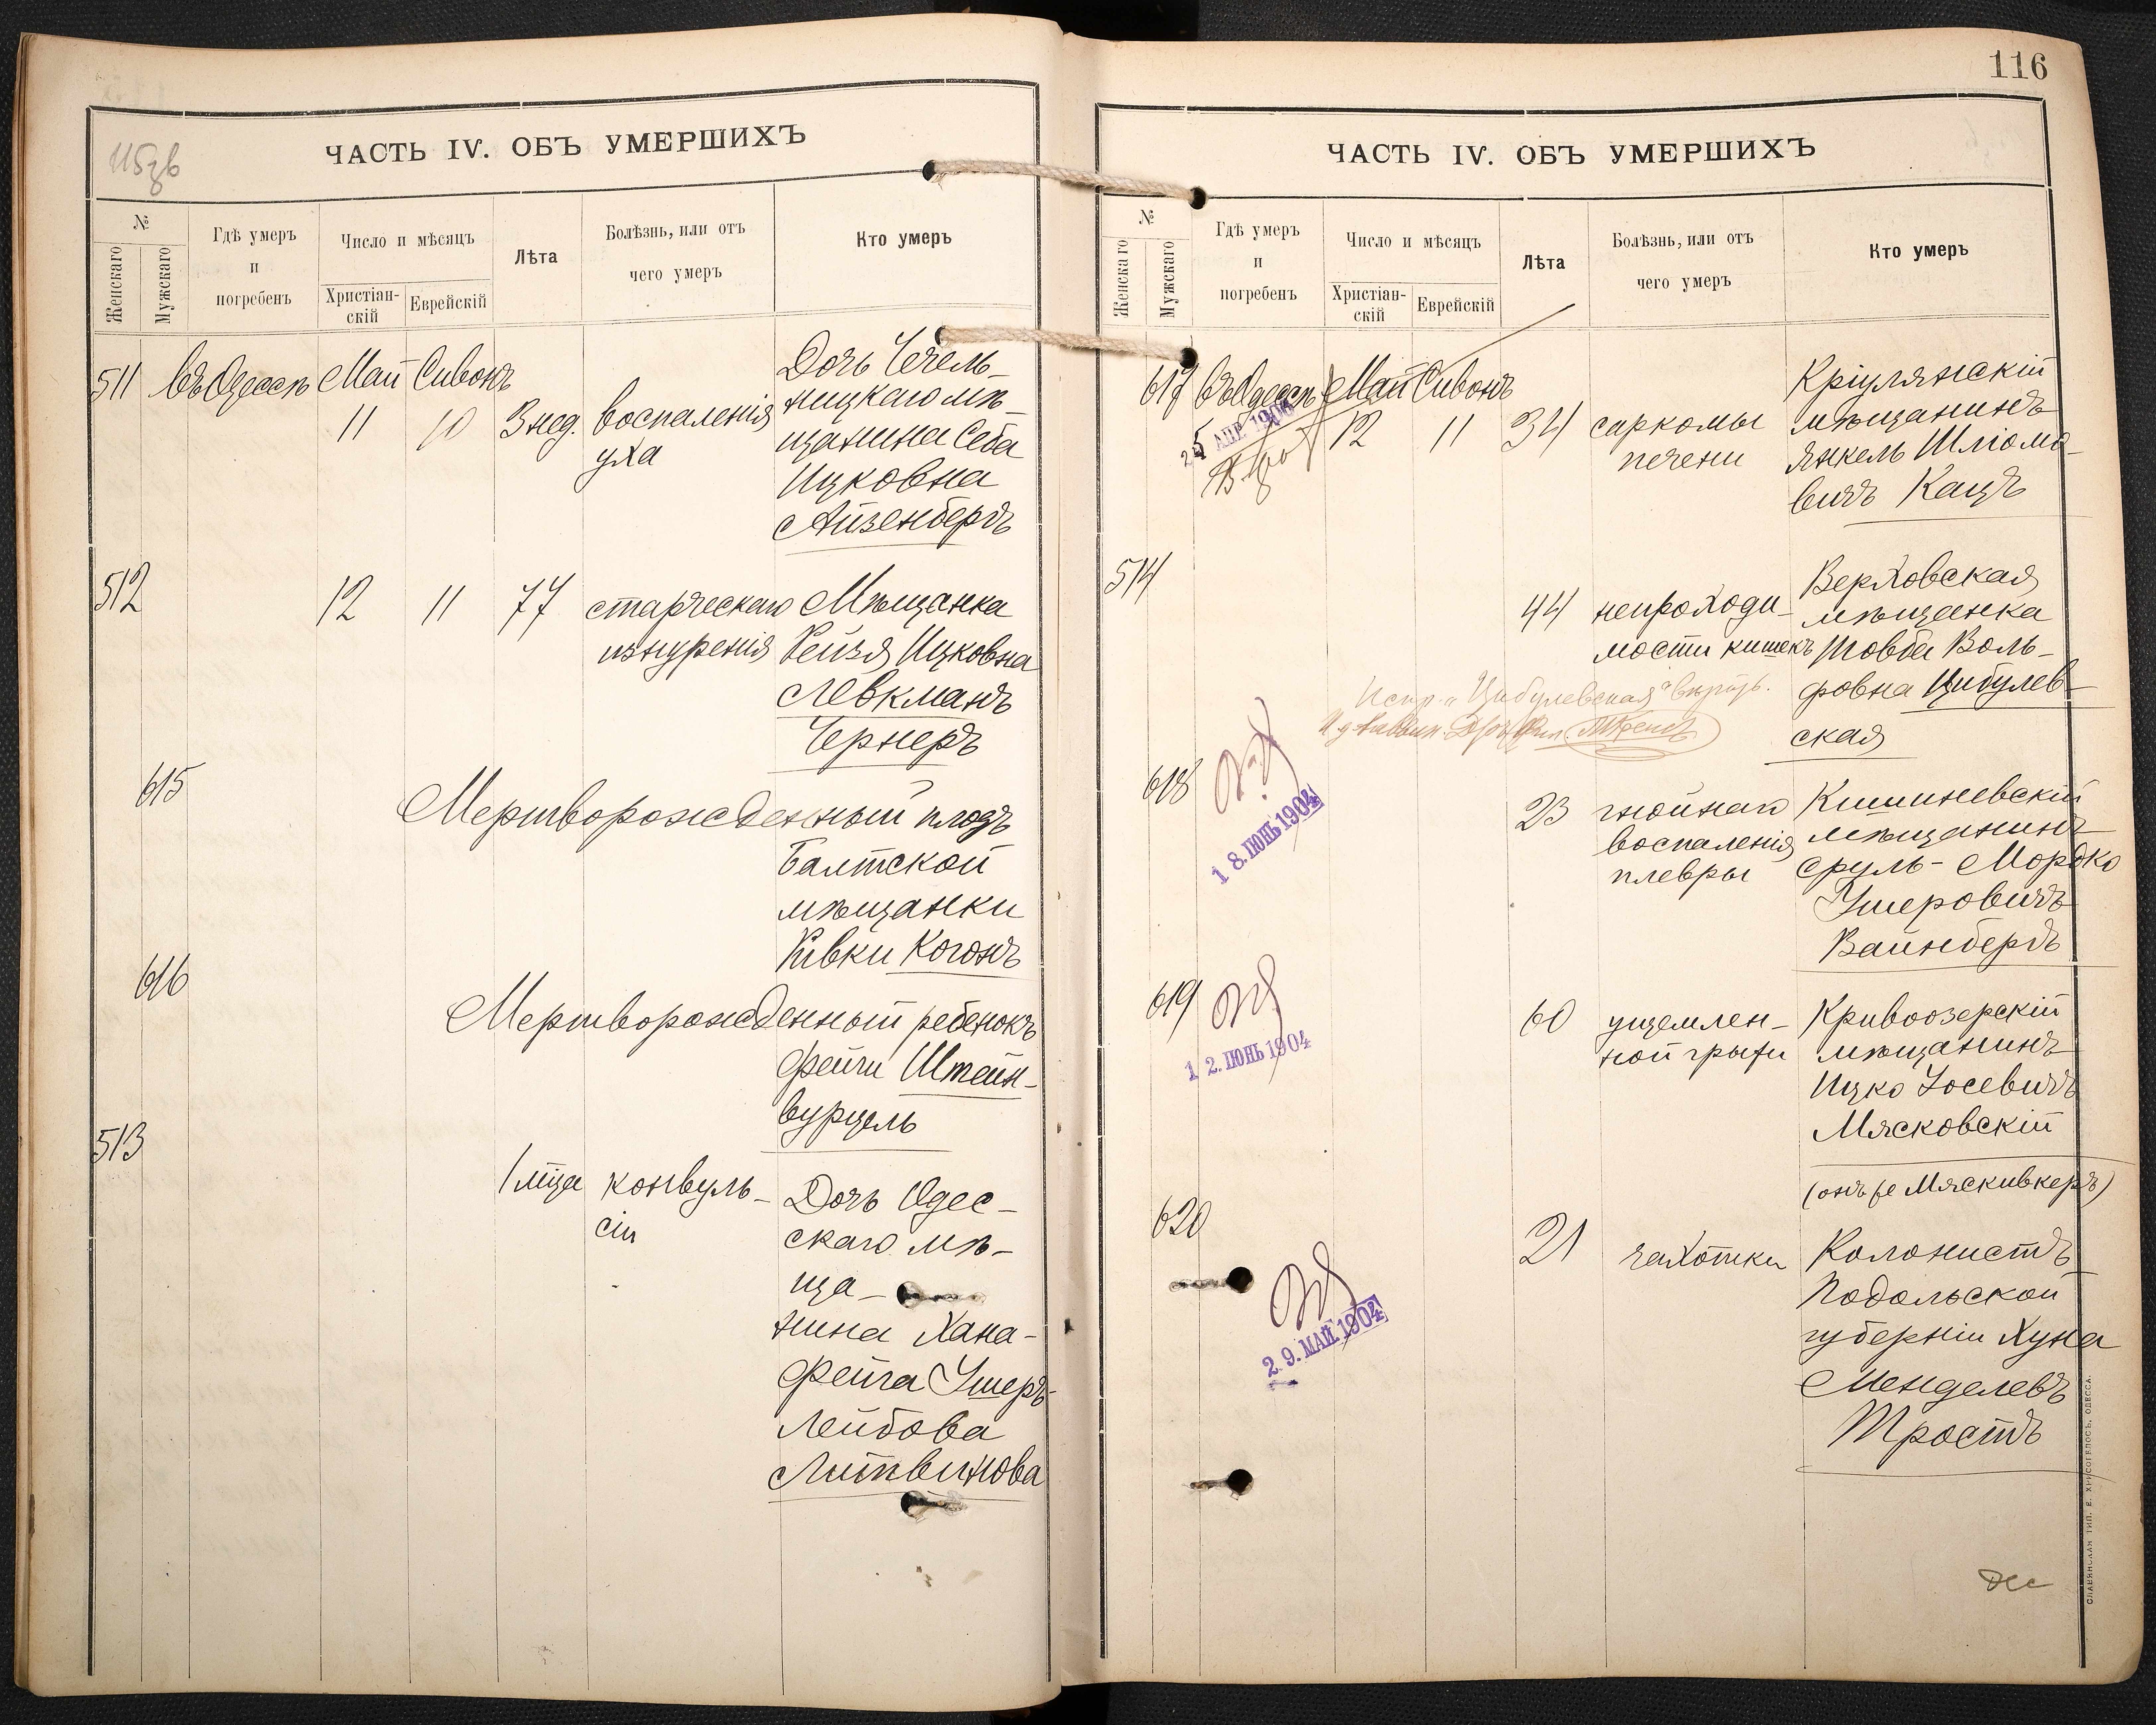 ЧАСТЬ IV. ОБЪ УМЕРШИХЪ
№
Женскаго
Мужскаго
Гдѣ умеръ
и
погребенъ
Число и мѣсяцъ
Христіан-
скій
Еврейскій
Лѣта
Болѣзнь, или отъ
чего умеръ
Кто умеръ
511 въ Одессѣ Май Сивонъ
11 10 3 нед. воспаленія
уха
Дочь Чечель-
ницкаго мѣ-
щанина Себа
Ицковна
Айзенбергъ
512 12 11 77 старческаго
изнуренія
Мѣщанка
Рейзя Ицковна
Левкманъ
Чернеръ
615
Мертворожденный плодъ
Балтской
мѣщанки
Ривки Когонъ
616
Мертворожденный ребенокъ
Фейги Штейн-
вурцель
513 1 мца конвуль-
сіи
Дочь Одес-
скаго мѣ-
ща-
нина Хана-
Фейга Ушеръ-
Лейбова
Литвинова
116
ЧАСТЬ IV. ОБЪ УМЕРШИХЪ
№
Женскаго
Мужскаго
Гдѣ умеръ
и
погребенъ
Число и мѣсяцъ
Христіан-
скій
Еврейскій
Лѣта
Болѣзнь, или отъ
чего умеръ
Кто умеръ
617 въ Одессѣ Май Сивонъ
12 11 34 саркомы
печени
Кріулянскій
мѣщанинъ
Янкель Шліомо-
вичъ Кацъ
514
44 непроходи-
мости кишекъ
Верховская
мѣщанка
Товба Воль-
фовна Цибулев-
ская
Испр. „Цибулевская" вѣрить.
618
1 8. ІЮНЬ 1904
23 гнойнаго
воспаленія
плевры
Кишиневскій
мѣщанинъ
Сруль-Мордко
Ушеровичъ
Вайнбергъ
619
1 2. ІЮНЬ 1904
60 ущемлен-
ной грыжи
Кривоозерскій
мѣщанинъ
Ицко Іосевичъ
Мясковскій
(онъ же Мяскивкеръ)
620
2 9. МАЙ 1904
21 чахотки
Колонистъ
Подольской
губерніи Хуна
Менделевъ
Тростъ
СЛАВЯНСКАЯ ТИП. Е. ХРИСОГЕЛОСЪ, ОДЕССА.